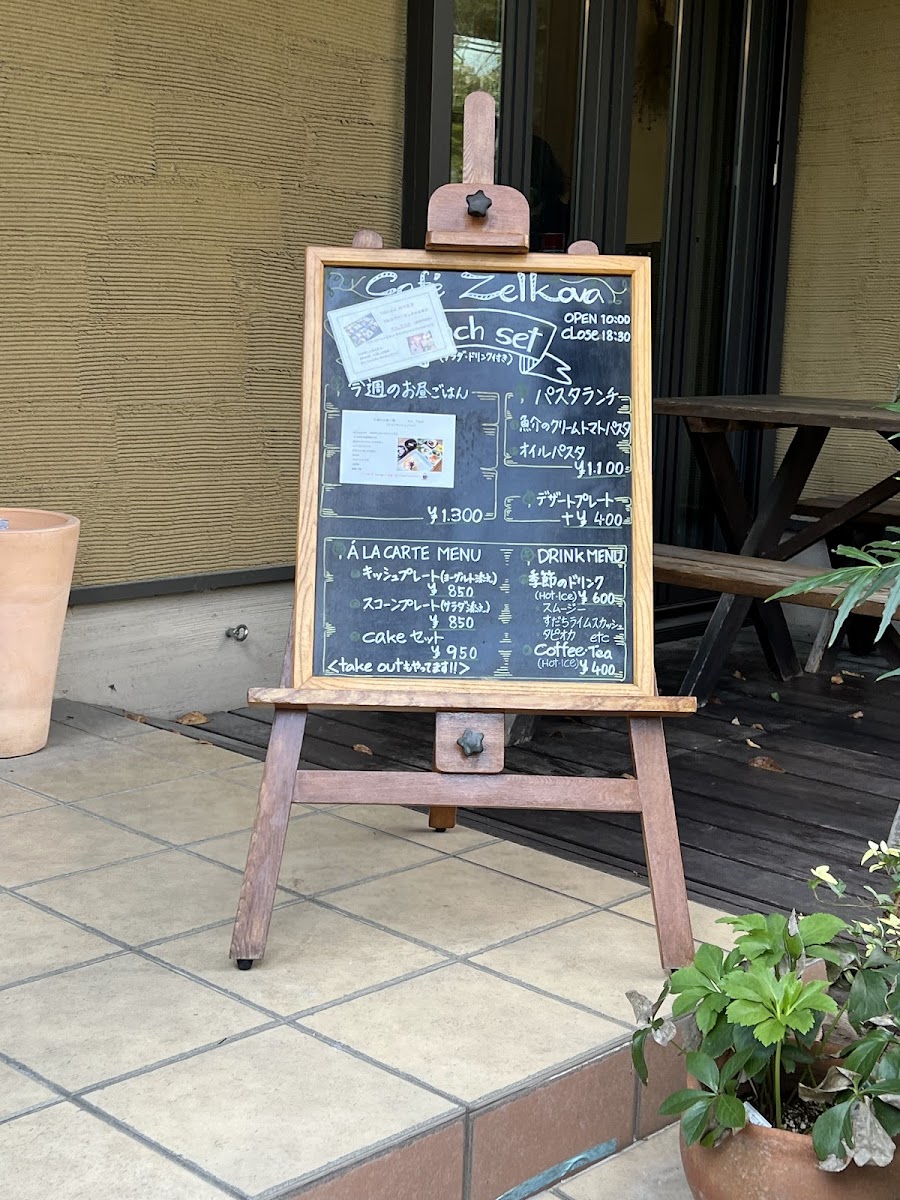 Café Zelkova
OPEN 10:00
CLOSE 18:30
ch set
ドリンク付き)
今週のお昼ごはん
¥1.300
パスタランチ
魚介のクリームトマトパスタ
オイルパスタ
¥1.100
デザートプレート
+¥400
Á LA CARTE MENU
キッシュプレート(ヨーグルト添え)
¥850
スコーンプレート(サラダ添え)
¥850
cake セット
¥950
<take outもやってます!!>
DRINK MENU
季節のドリンク
(HOT・ICE) ¥600
スムージー
すだちライムスカッシュ
タピオカ etc
Coffee・Tea
(HOT・ICE) ¥400